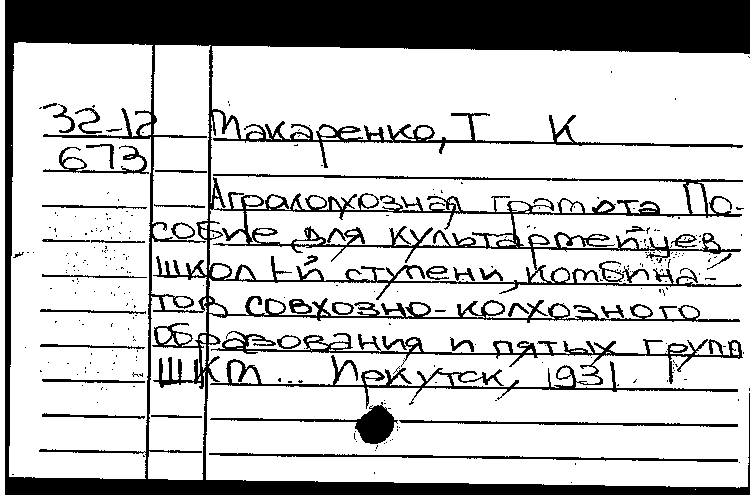 32-12 Макаренко, Т К
673
Агралолхозная грамота По-
собие для культармейцев,
школ I-й ступени, комбина-
тов совхозно-колхозного
образования и пятых групп
ШКМ... Иркутск, 1931